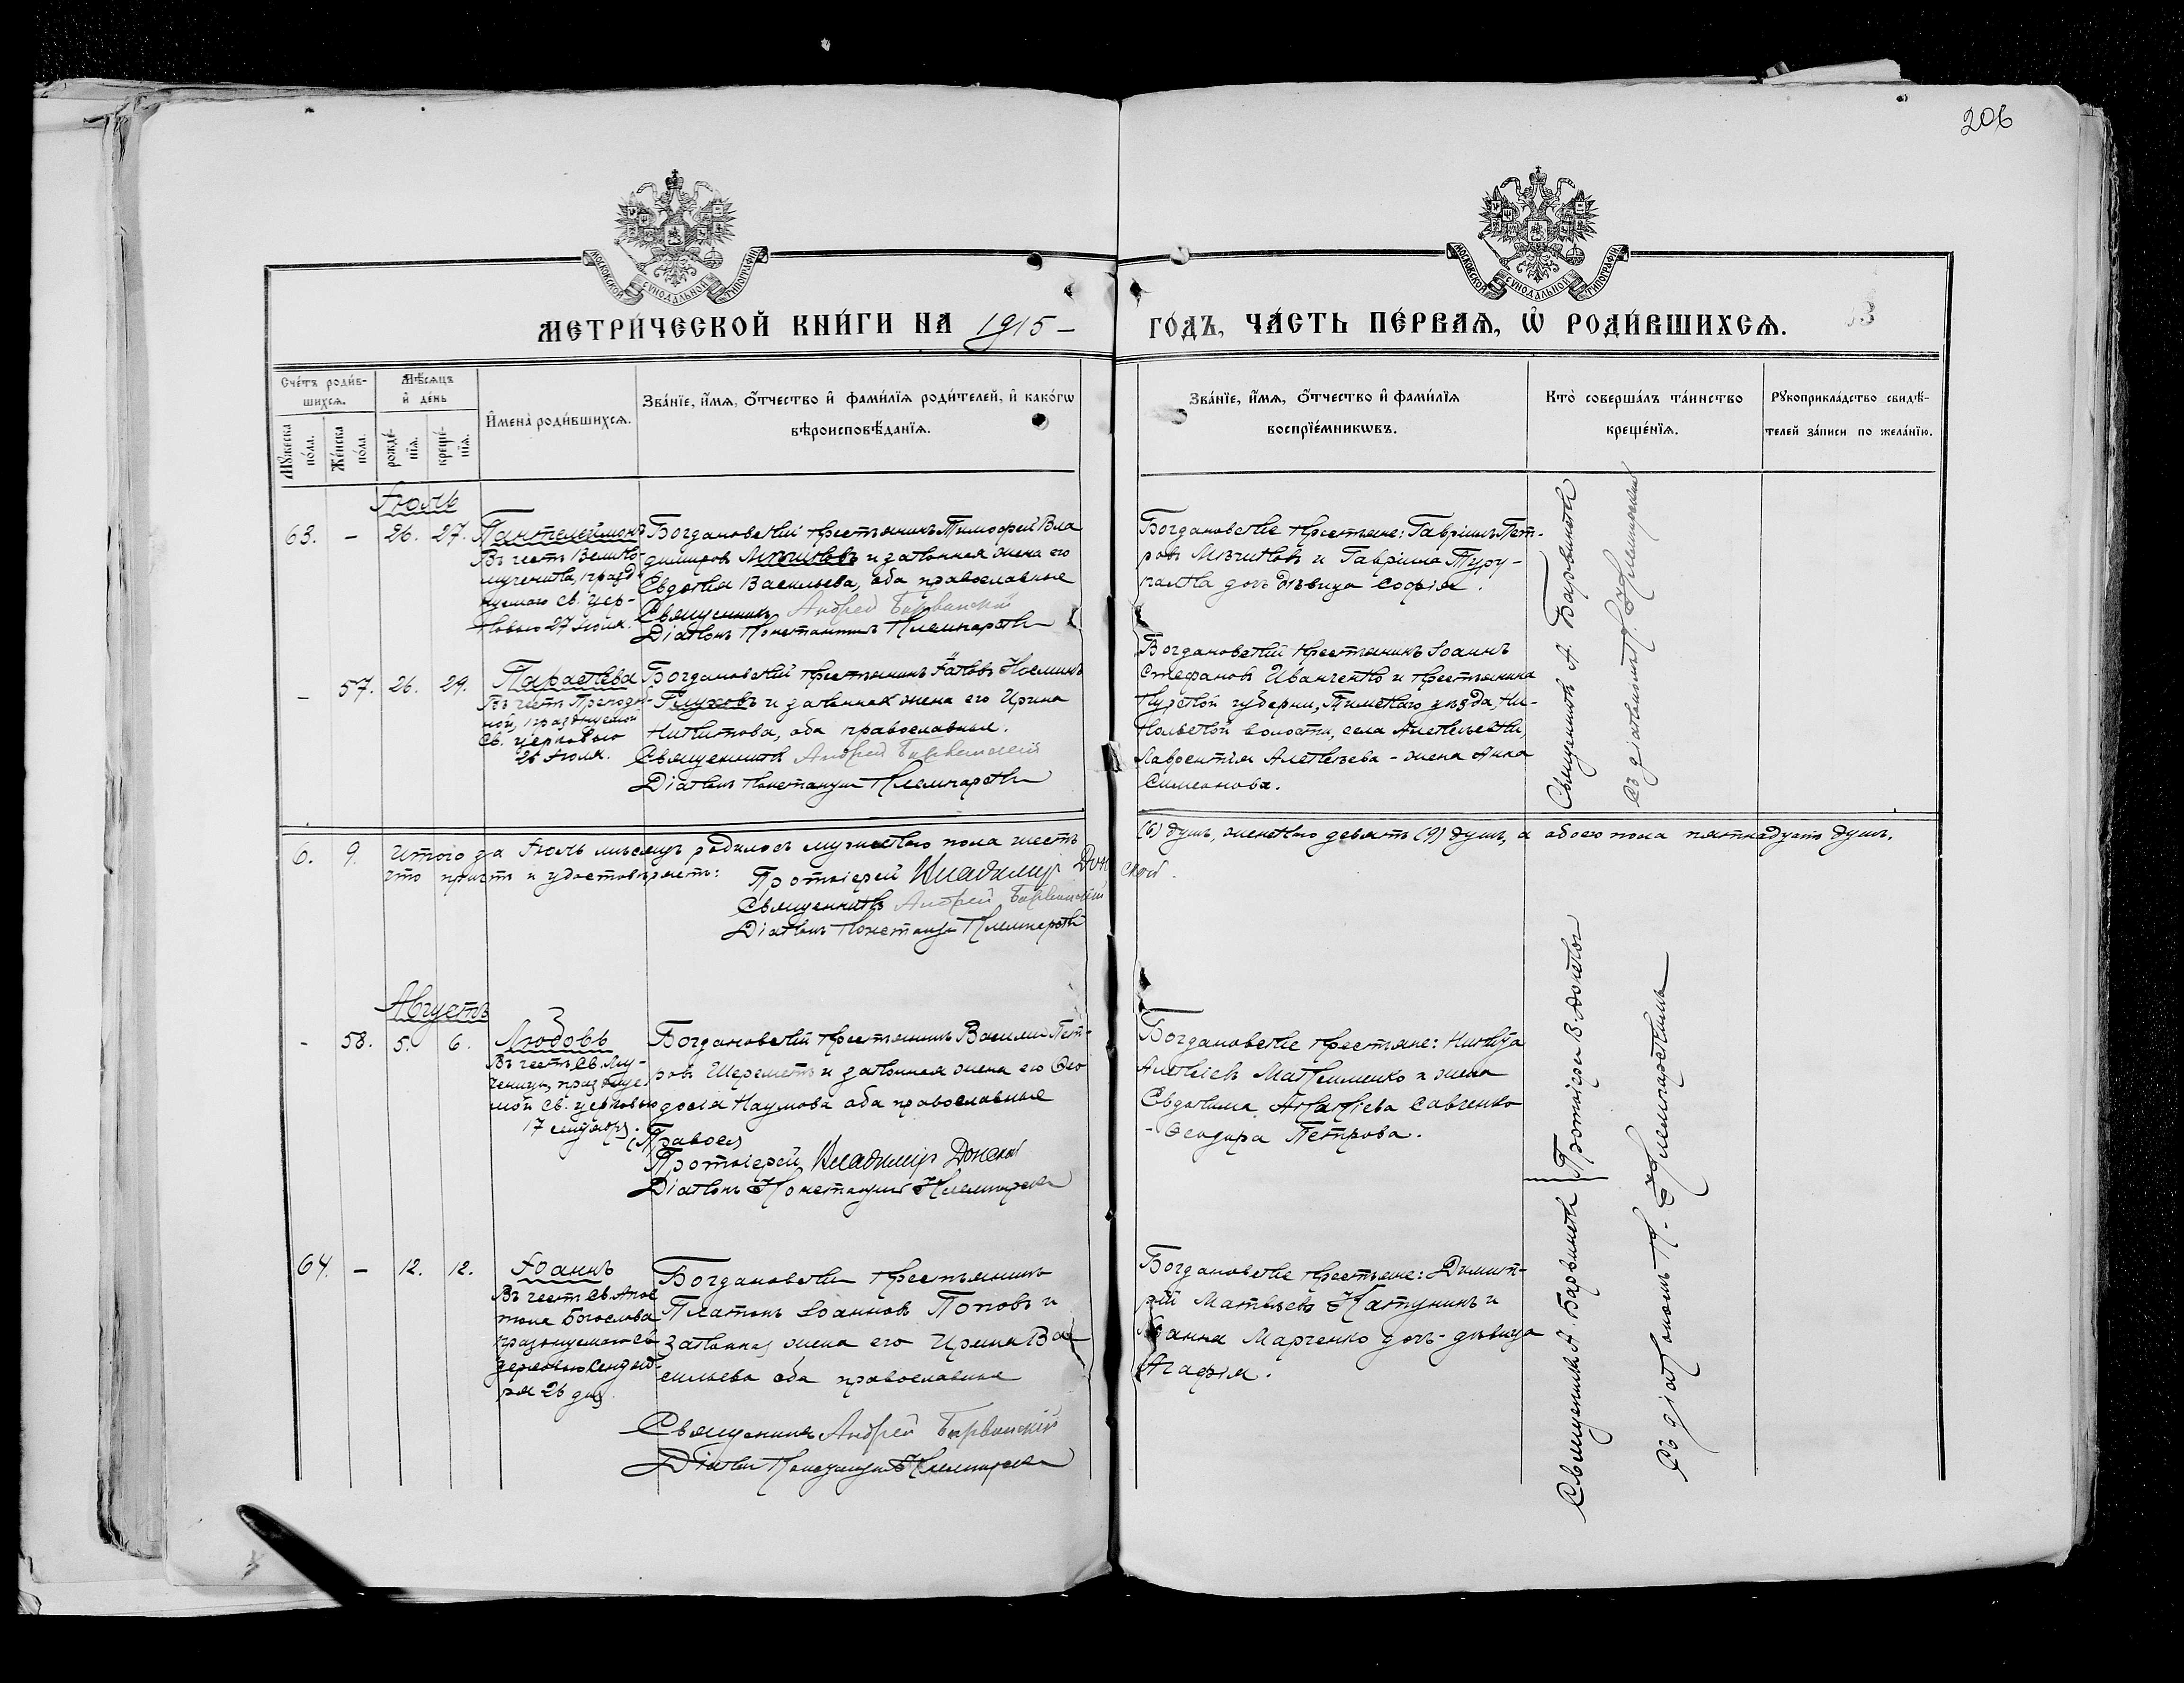 206
МОСКОВСКОЙ СѴНОДАЛЬНОЙ ТИПОГРАФІИ
МОСКОВСКОЙ СѴНОДАЛЬНОЙ ТИПОГРАФІИ
МЕТРИ́ЧЕСКОЙ КНИ́ГИ НА 1915 – ГО́ДЪ, ЧА́СТЬ ПЕ́РВАѦ, Ѡ҆ РОДИ́ВШИХСѦ.
Сче́тъ роди́в-
шихсѧ.
Мꙋ́жеска по́ла.
Же́нска по́ла.
Мѣ́сѧцъ
и҆ де́нь
рожде́-
нїѧ.
креще́-
нїѧ.
И҆мена̀ роди́вшихсѧ.
Зва́нїе, и҆́мѧ, ѻ҆́тчество и҆ фами́лїѧ роди́телей, и҆ како́гѡ
вѣроисповѣ́данїѧ.
Зва́нїе, и҆́мѧ, ѻ҆́тчество и҆ фами́лїѧ
воспрїе́мникѡвъ.
Кто̀ соверша́лъ та́инство
креще́нїѧ.
Рꙋкоприкла́дство свидѣ́-
телей за́писи по жела́нїю.
Іюль
63. – 26. 27. Пантелеймонъ
Въ честь Велико-
мученика, празд-
нуемаго св. цер-
ковью 27 іюля.
Богдановскій крестьянинъ Тимофей Вла
димировъ и законная жена его
Евдокія Васильева, оба православные
Священникъ Андрей Барвинскій
Діаконъ Константинъ
Богдановскіе крестьяне: Гавріилъ Пет-
ровъ и Гавріила Туру-
дочь дѣвица Софія.
Священникъ А. Барвинскій
Съ діакономъ К.
– 57. 26. 29. Параскева
Въ честь Преподоб-
ной, празднуемой
Св. церковью
26 іюля.
Богдановскій крестьянинъ Іаковъ
Глуховъ и законная жена его Ирина
Никитова, оба православные.
Священникъ Андрей Барвинскій
Діаконъ Константинъ
Богдановскій крестьянинъ Іоаннъ
Стефановъ Иванченко и крестьянина
Курской губерни, Тимскаго уѣзда, Ни-
кольской волости, села Алексѣевки,
Лаврентія Алексѣева – жена Анна
Симеонова.
6. 9. Итого за Іюль мѣсяцъ родилось мужескаго пола шесть (6) душъ, женскаго девять (9) душъ, а обоего пола пятнадцать душъ,
что причтъ и удостовѣряетъ: Протоіерей Владимир Донской.
Священникъ Андрей Барвинскій
Діаконъ Константинъ
Августъ
– 58. 5. 6. Любовь
Въ честь св. Му-
ченицы, празднуе
мой св. церковью
17 сентября.
Богдановскій крестьянинъ Василій Пет-
ровъ Шереметъ и законная жена его Ѳео
досія Наумова оба православные
Протоіерей Владимир Донской
Діаконъ Константинъ
Богдановскіе крестьяне: Никита
Алексѣевъ Максименко и жена
Евдокима Савченко
– Ѳеодора Петрова.
Протоіерей В. Донской
64. – 12. 12. Іоаннъ
Въ честь св. Апос
тола Богослова
празднуемаго св
церковью сентяб-
ря 26 дня
Богдановскій крестьянинъ
Платонъ Іоанновъ Поповъ и
законная жена его Ирина Ва
сильева оба православные
Священникъ Андрей Барвинскій
Діаконъ Константинъ
Богдановскіе крестьяне: Димит-
рій Матвѣевъ и
Іоанна Марченко дочь-дѣвица
Агафія.
Священникъ А. Барвинскій
Съ діакономъ К.